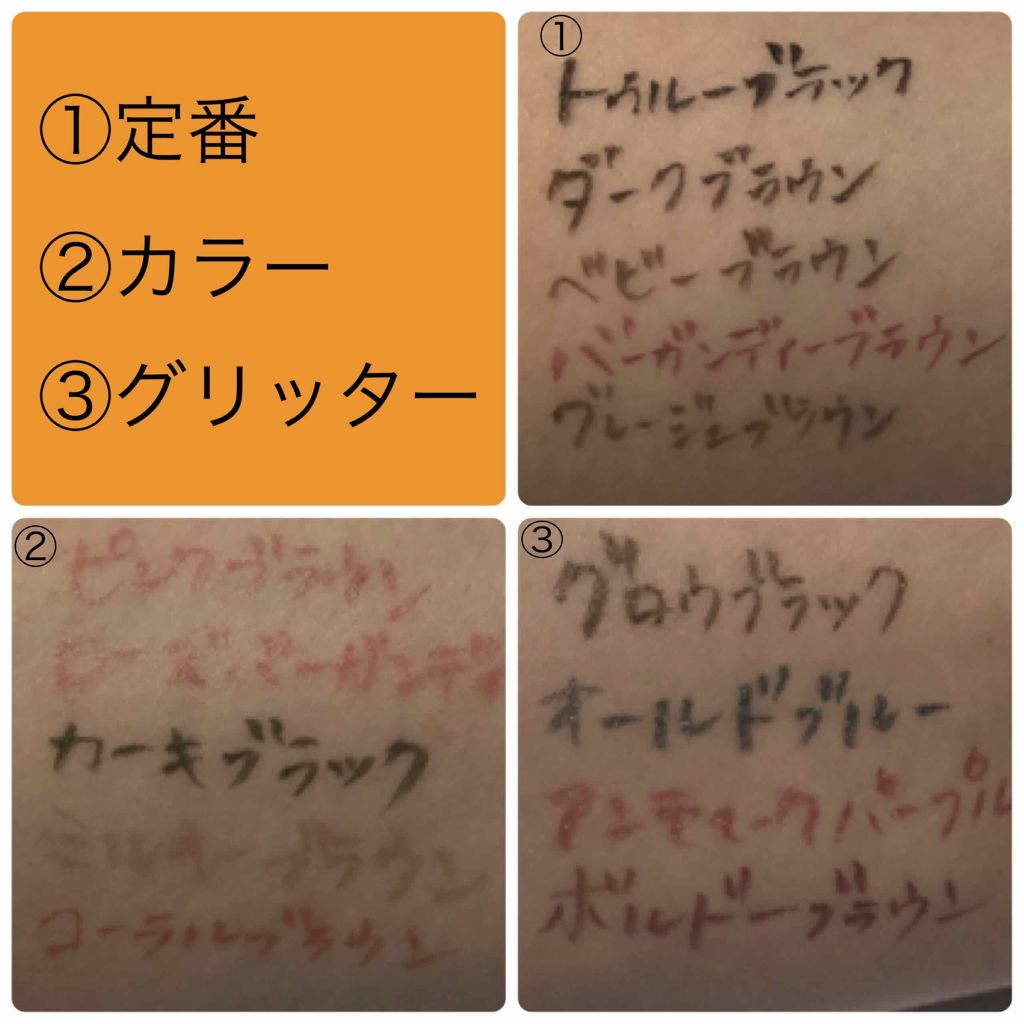 ①定番
②カラー
③グリッター
①
トゥルーブラック
ダークブラウン
ベビーブラウン
バーガンディーブラウン
グレージュブラウン
②
ピンクブラウン
ローズバーガンディ
カーキブラック
ミルキーブラウン
コーラルブラウン
③
グロウブラック
オールドブルー
アンティークパープル
ボルドーブラウン